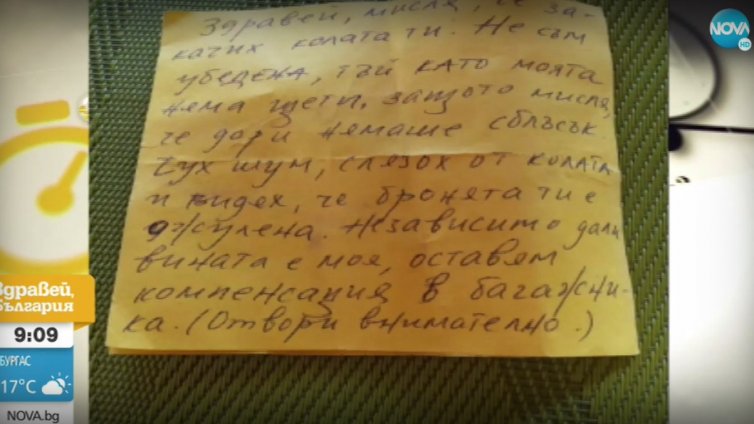 Здравей, мисля, че за-
качих колата ти. Не съм
убедена, тъй като моята
няма щети, защото мисля,
че дори нямаше сблъсък.
Чух шум, слязох от колата
и видех, че бронята ти е
ожулена. Независимо дали
вината е моя, оставям
компенсация в багажни-
ка. (Отвори внимателно.)
NOVA
HD
здравей,
българия
9:09
БУРГАС
17°C
NOVA.bg